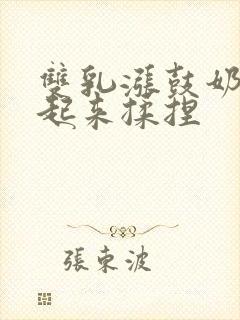 雙乳漲鼓奶
起來揉捏
張東波